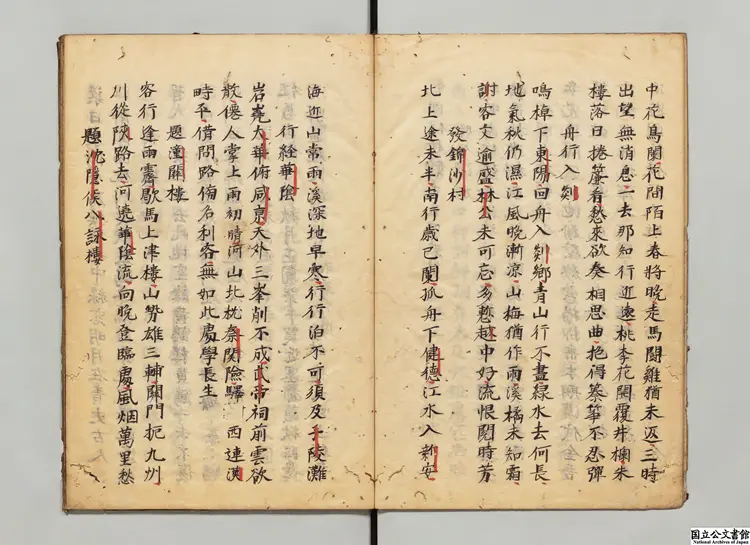 中花鳥閑花間陌上春將晚走馬鬪雞猶未返三時
出望無消息一去那知行近遠桃李花開覆井欄朱
樓落日捲簾看愁來欲奏相思曲抱得秦箏不忍彈
舟行入剡
鳴棹下東陽回舟入剡鄉青山行不盡綠水去何長
地氣秋仍濕江風晚漸凉山梅猶作雨溪橘未知霜
謝客文逾盛林公未可忘多慙越中好流恨閱時芳
發錦沙村
北上途未半南行歲已闌孤舟下健德江水入新安
海近山常雨溪深地早寒行行泊不可須及子陵灘
行經華陰
岩嶤太華俯咸京天外三峯削不成武帝祠前雲欲
散僊人掌上雨初晴河山北枕秦関險驛 西連漢
時平借問路傍名利客無如此處學長生
題潼關樓
客行逢雨霽歇馬上津樓山勢雄三輔關門扼九州
川從陝路去河遶華陰流向晚登臨處風烟萬里愁
題沈隱侯八詠樓
国立公文書館
National Archives of Japan